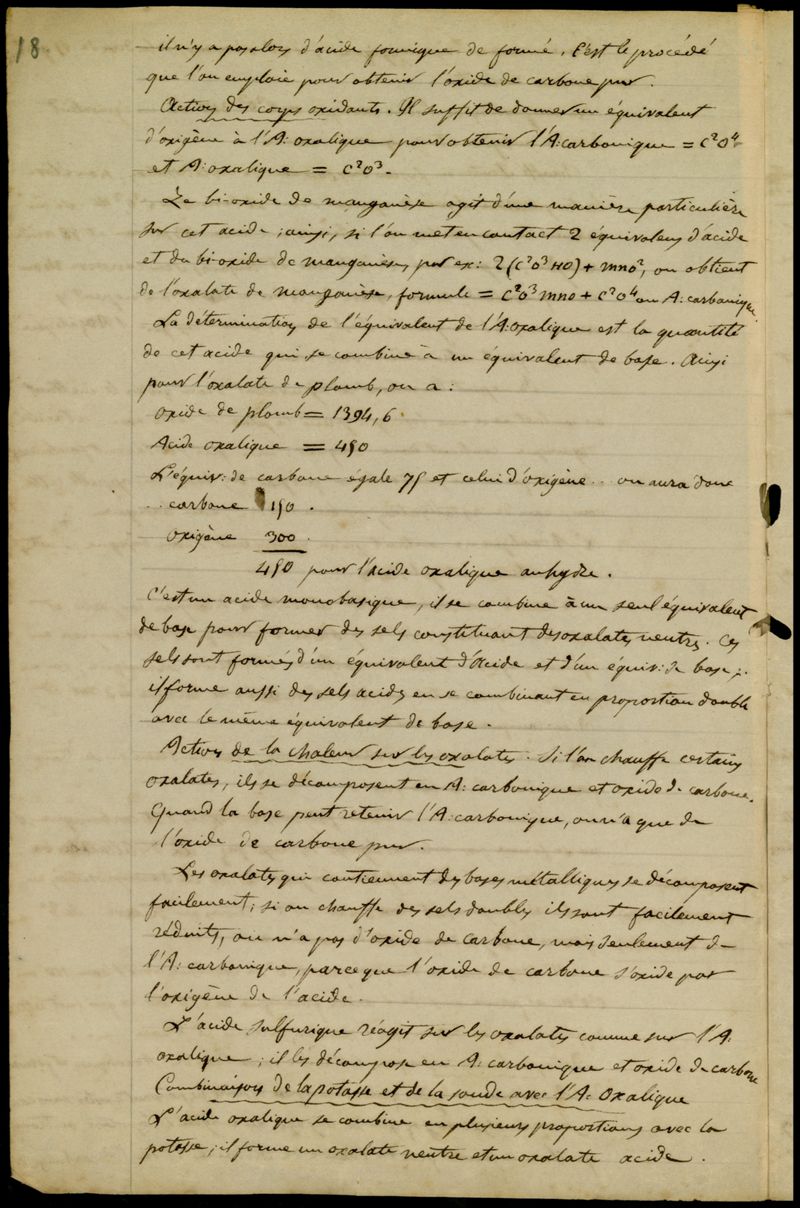 18
il n'y a pas alors d'acide formique de formé. C'est le procédé
que l'on emploie pour obtenir l'oxide de carbone pur.
Action des corps oxidants. Il suffit de donner un équivalent
d'oxigène à l'A: oxalique pour obtenir l'A: carbonique = C²O⁴
et A: oxalique = C²O³.
Le bi-oxide de manganèse agit d'une manière particulière
sur cet acide; ainsi, si l'on met en contact 2 équivalens d'acide
et du bi-oxide de manganèse, par ex: 2(C²O³HO) + mno², on obtient
de l'oxalate de manganèse, formule = C²O³mno + C²O⁴ ou A: carbonique.
La détermination de l'équivalent de l'A: oxalique est la quantité
de cet acide qui se combine à un équivalent de base. Ainsi
pour l'oxalate de plomb, on a:
oxide de plomb = 1394,6
Acide oxalique = 450
L'équiv: de carbone égale 75 et celui d'oxigène .. on aura donc
.. carbone 150.
oxigène 300.
450 pour l'acide oxalique anhydre.
C'est un acide monobasique, il se combine à un seul équivalent
de base pour former des sels constituant des oxalates neutres. Ces
sels sont formés d'un équivalent d'acide et d'un équiv: de base;
il forme aussi des sels acides en se combinant en proportion double
avec le même équivalent de base.
Action de la chaleur sur les oxalates. Si l'on chauffe certains
oxalates, ils se décomposent en A: carbonique et oxide de carbone.
Quand la base peut retenir l'A: carbonique, on n'a que de
l'oxide de carbone pur.
Les oxalates qui contiennent des bases métalliques se décomposent
facilement; si on chauffe des sels doubles ils sont facilement
réduits, on n'a pas d'oxide de carbone, mais seulement de
l'A: carbonique, parce que l'oxide de carbone s'oxide par
l'oxigène de l'acide.
L'acide sulfurique réagit sur les oxalates comme sur l'A:
oxalique; il les décompose en A: carbonique et oxide de carbone
Combinaison de la potasse et de la soude avec l'A: Oxalique
L'acide oxalique se combine en plusieurs proportions avec la
potasse; il forme un oxalate neutre et un oxalate acide.